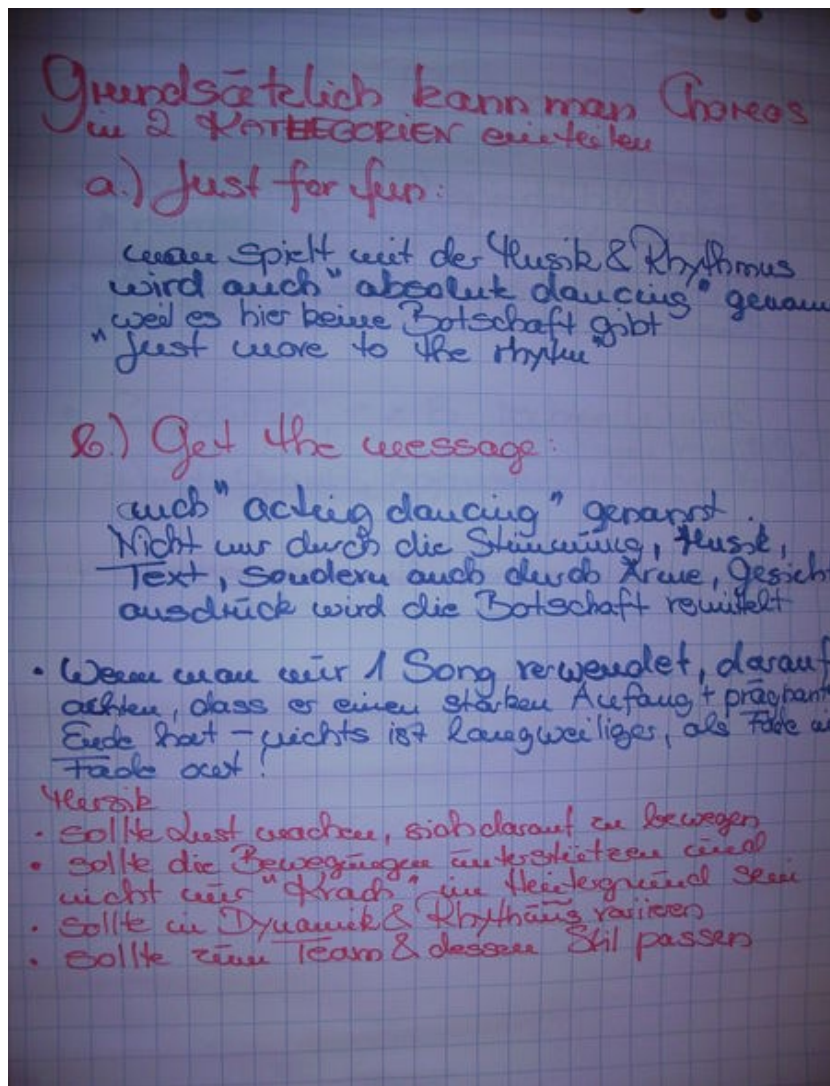 Grundsätzlich kann man Choreos
in 2 KATHEGORIEN einteilen
a.) Just for fun:
man spielt mit der Musik & Rhythmus
wird auch "absolut dancing" genann
weil es hier keine Botschaft gibt
"Just move to the rhythm"
b.) Get the message:
auch "acting dancing" genannt.
Nicht nur durch die Stimmung, Musik,
Text, sondern auch durch Arme, Gesich
ausdrück wird die Botschaft vermittelt
• Wenn man nur 1 Song verwendet, darauf
achten, dass er einen starken Anfang + prägnant
Ende hat - nichts ist langweiliger, als Fade
Fade out!
Musik
• sollte Lust machen, sich darauf zu bewegen
• sollte die Bewegungen unterstützen und
nicht nur "Krach" im Hintergrund sein
• sollte in Dynamik & Rhythmus variieren
• sollte zum Team & dessen Stil passen